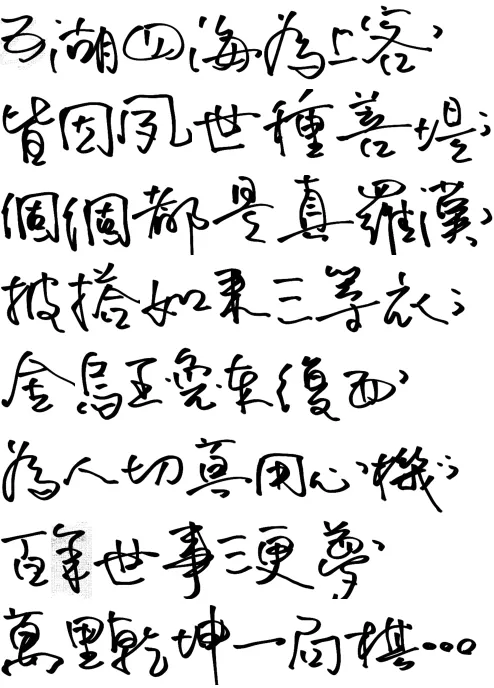 五湖四海為上客，
皆因夙世種菩堤；
個個都是真羅漢；
披搭如來三等衣；
金烏玉兔東復西，
為人切真用心機；
百年世事三更夢，
萬里乾坤一局棋…